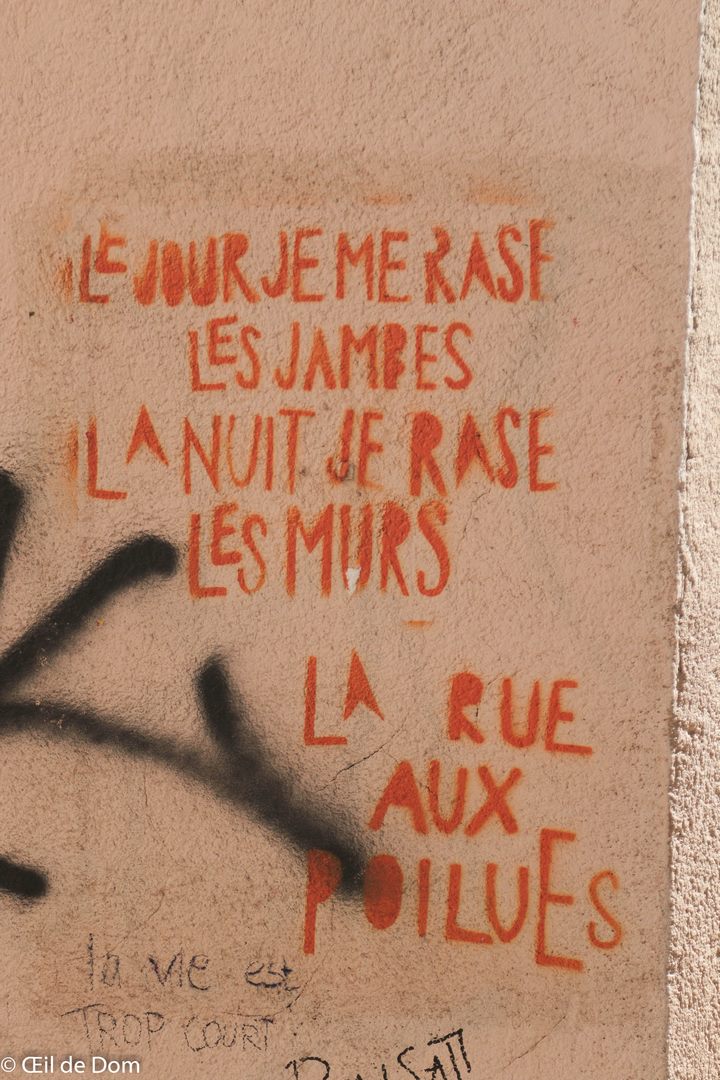 LE JOUR JE ME RASE
LES JAMBES
LA NUIT JE RASE
LES MURS
LA RUE
AUX
POILUES
la vie est
TROP COURT
© Œil de Dom